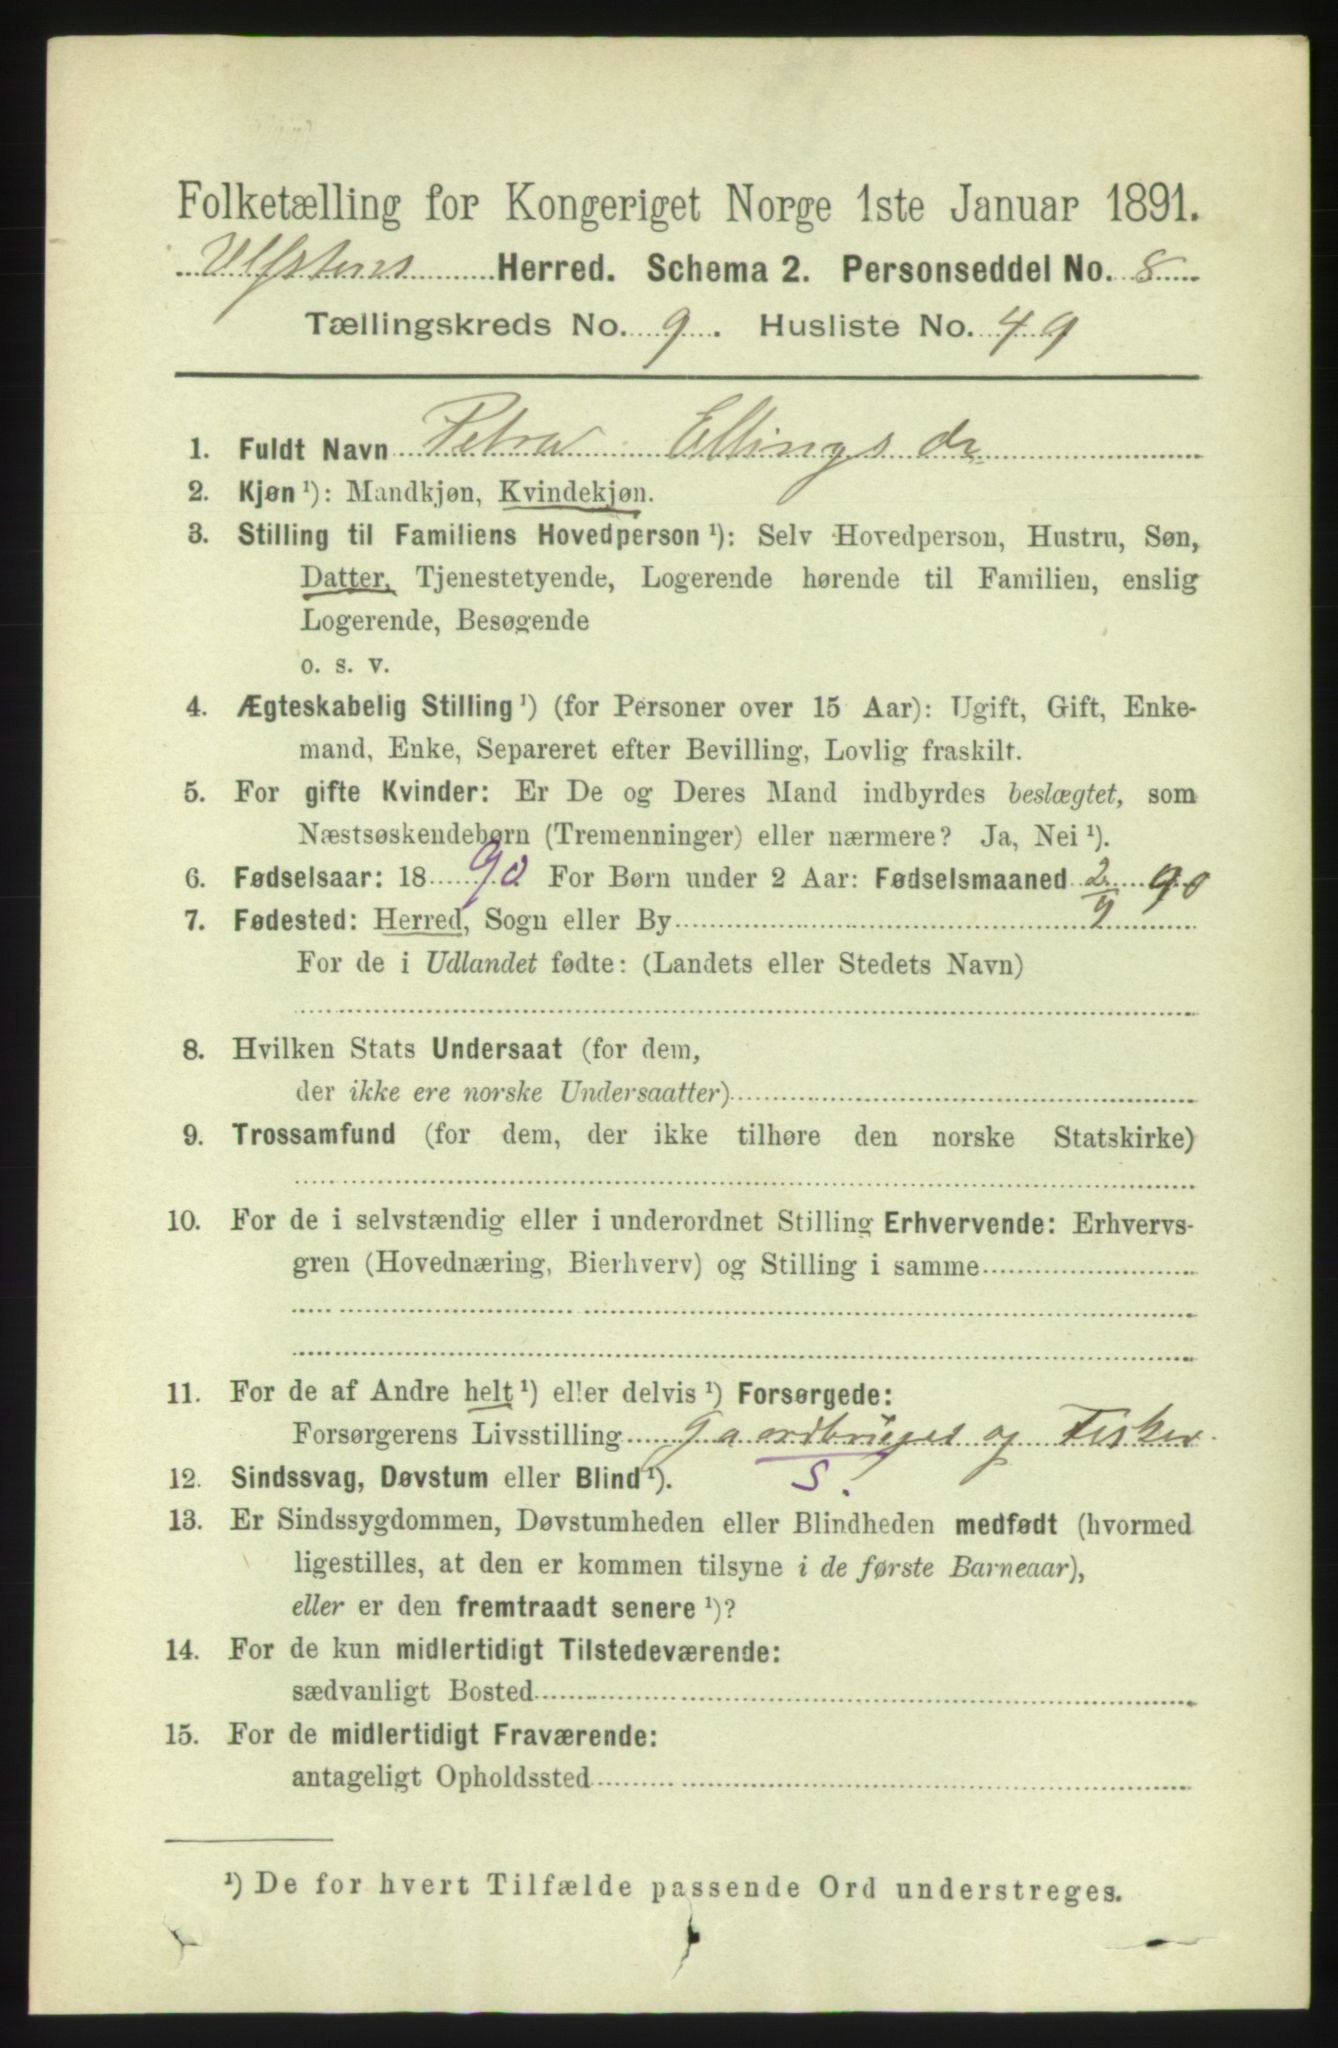 Folketælling for Kongeriget Norge 1ste Januar 1891.
Ulfstens Herred. Schema 2. Personseddel No. 8
Tællingskreds No. 9. Husliste No. 49
1. Fuldt Navn Petra Ellingsdr
2. Kjøn ¹): Mandkjøn, Kvindekjøn.
3. Stilling til Familiens Hovedperson ¹): Selv Hovedperson, Hustru, Søn,
Datter, Tjenestetyende, Logerende hørende til Familien, enslig
Logerende, Besøgende
o. s. v.
4. Ægteskabelig Stilling ¹) (for Personer over 15 Aar): Ugift, Gift, Enke-
mand, Enke, Separeret efter Bevilling, Lovlig fraskilt.
5. For gifte Kvinder: Er De og Deres Mand indbyrdes beslægtet, som
Næstsøskendebørn (Tremenninger) eller nærmere? Ja, Nei ¹).
6. Fødselsaar: 1890 For Børn under 2 Aar: Fødselsmaaned 2/9 90
7. Fødested: Herred, Sogn eller By
For de i Udlandet fødte: (Landets eller Stedets Navn)
8. Hvilken Stats Undersaat (for dem,
der ikke ere norske Undersaatter)
9. Trossamfund (for dem, der ikke tilhøre den norske Statskirke)
10. For de i selvstændig eller i underordnet Stilling Erhvervende: Erhvervs-
gren (Hovednæring, Bierhverv) og Stilling i samme
11. For de af Andre helt ¹) eller delvis ¹) Forsørgede:
Forsørgerens Livsstilling Gaardbruges og Fisker
S!
12. Sindssvag, Døvstum eller Blind ¹).
13. Er Sindssygdommen, Døvstumheden eller Blindheden medfødt (hvormed
ligestilles, at den er kommen tilsyne i de første Barneaar),
eller er den fremtraadt senere ¹)?
14. For de kun midlertidigt Tilstedeværende:
sædvanligt Bosted
15. For de midlertidigt Fraværende:
antageligt Opholdssted
¹) De for hvert Tilfælde passende Ord understreges.